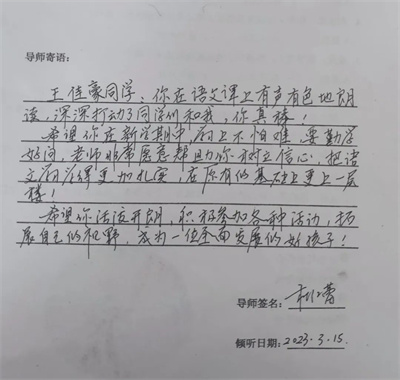 导师寄语:
王佳豪同学:你在语文课上有声有色地朗
读,深深打动了同学们和我,你真棒!
希望你在新学期中 上不怕难,要勤学
好问,老师非常愿意帮助你树立信心,把语
文 学得更加扎实,在原有的基础上更上一层
楼!
希望你活泼开朗,积极参加各种活动,拓
展自己的视野,成为一位全面发展的好孩子!
导师签名:
倾听日期:2023.3.15.